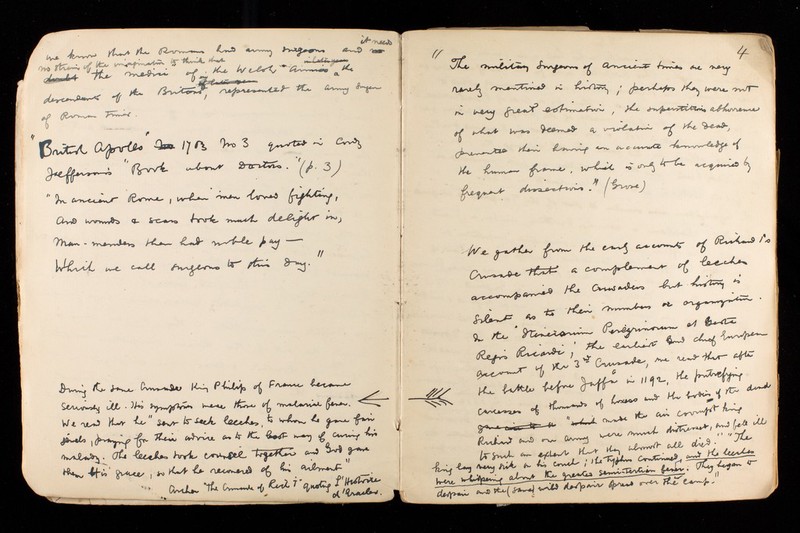 we know that the Romans had army surgeons and it needs
no strain of the imagination to think that
the medici of the Welsh Armies & the
descendants of the Britons, represented the army surgeon
of Roman times.
"British Apollo" 1708 No 3 quoted in Cordy
Jeafferson's "Book about Doctors." (p. 3)
"In ancient Rome, when men loved fighting,
And wounds & scars took much delight in,
Man-menders then had noble pay —
Which we call surgeons to this day."
During the same Crusade King Philip of France became
seriously ill. His symptoms were those of malarial fever.
We read that he "sent to seek leeches, to whom he gave fair
jewels, praying for their advice as to the best way of curing his
malady. The leeches took counsel together and God gave
them His grace, so that he recovered of his ailment"
Archer "The Crusade of Rich I" quoting L'Histoire
d'Eracles.
4
"The military surgeons of ancient times are very
rarely mentioned in history; perhaps they were not
in very great estimation, the superstitious abhorrence
of what was deemed a violation of the dead,
prevented their having an accurate knowledge of
the human frame, which is only to be acquired by
frequent dissections." (Grose)
We gather from the early accounts of Richard I's
Crusade that a complement of leeches
accompanied the Crusaders but history is
silent as to their numbers or organization.
In the "Itinerarium Peregrinorum et Gesta
Regis Ricardi", the earliest and chief European
account of the 3rd Crusade, we read that after
the battle before Jaffa in 1192, the putrefying
carcasses of thousands of horses and the bodies of the dead
"which made the air corrupt King
Richard and our army were much distressed, and fell ill
to such an extent that they almost all died." "The
king lay very sick on his couch; the typhus continued, and the leeches
were whispering about the greater semitertian fever. They began to
despair and the (same) wild despair spread over the camp."